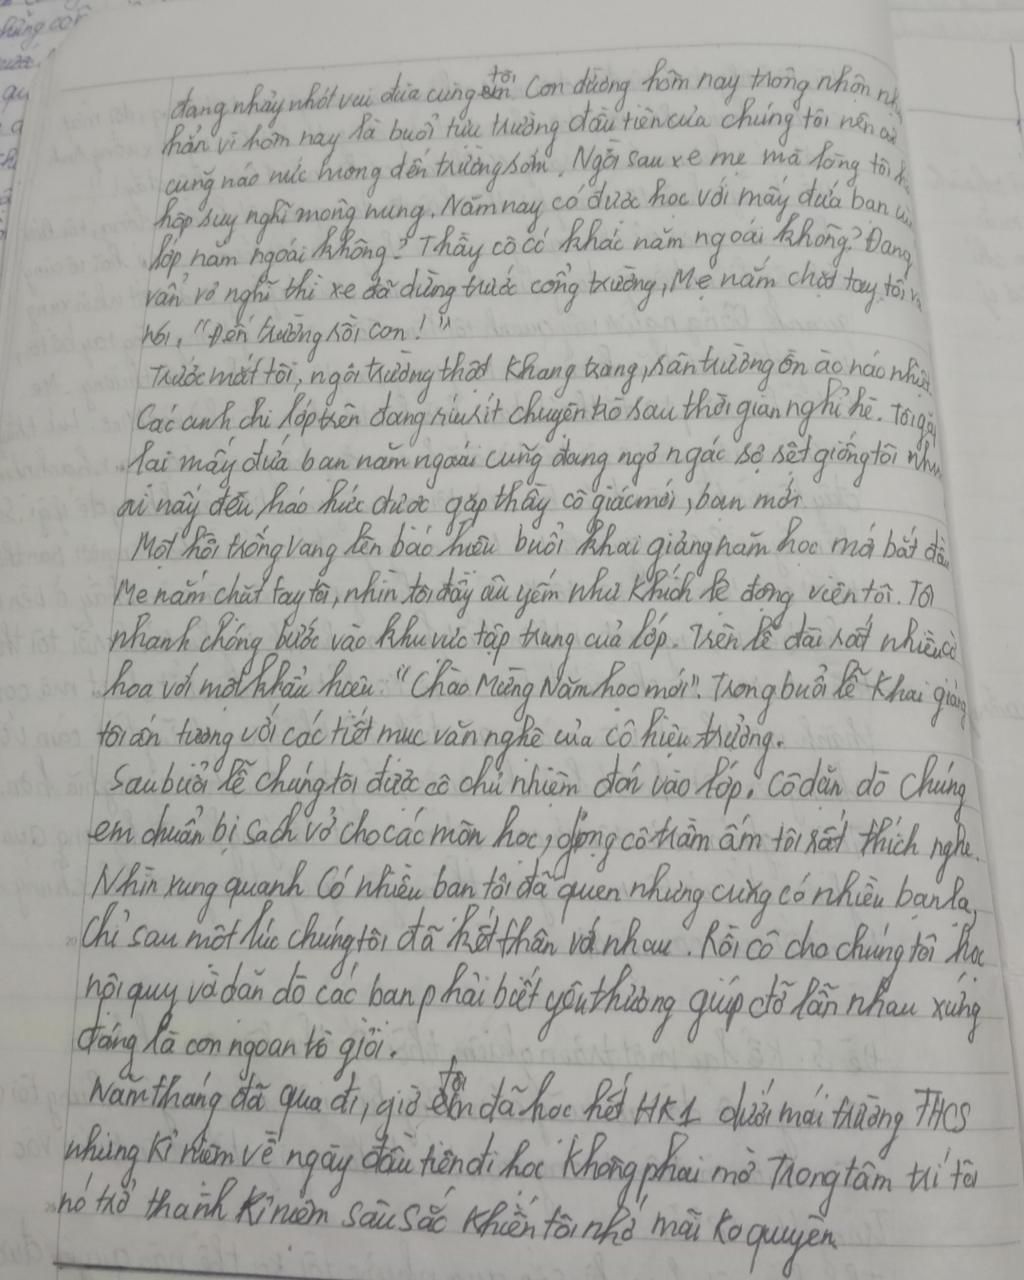 đang nhảy nhót vui đùa cùng tôi Con đường hôm nay trông nhộn nhịp
hẳn vì hôm nay là buổi tựu trường đầu tiên của chúng tôi nên ai
cũng náo nức hương đến trường sớm. Ngồi sau xe mẹ mà lòng tôi
hộp suy nghĩ mong nung. Năm nay có được học với mấy đứa bạn
lớp năm ngoái không? Thầy cô có khác năm ngoái không? Đang
vẩn vơ nghĩ thì xe đã dừng trước cổng trường, Mẹ nắm chặt tay tôi và
nói, "Đến trường rồi con!"
Trước mắt tôi, ngôi trường thật khang trang, sân trường ồn ào náo nhiệt
Các anh chị lớp trên đang ríu rít chuyện trò sau thời gian nghỉ hè. Tôi gặp
lại mấy đứa bạn năm ngoái cũng đang ngơ ngác sợ sệt giống tôi nhưng
ai nấy đều háo hức được gặp thầy cô giác mới, bạn mới
Một hồi trống vang lên báo hiệu buổi khai giảng năm học mớ bắt đầu
Mẹ nắm chặt tay tôi, nhìn tôi đầy âu yếm như khích lệ động viên tôi. Tôi
nhanh chóng bước vào khu vực tập trung của lớp. Trên lễ đài rất nhiều cờ
hoa với một khẩu hiệu: "Chào Mừng Năm học mới". Trong buổi lễ khai giảng
tôi ấn tượng với các tiết mục văn nghệ của cô hiệu trưởng.
Sau buổi lễ chúng tôi được cô chủ nhiệm đón vào lớp. Cô dặn dò chúng
em chuẩn bị sách vở cho các môn học, giọng cô trầm ấm tôi rất thích nghe.
Nhìn xung quanh Có nhiều bạn tôi đã quen nhưng cũng có nhiều bạn lạ,
Chỉ sau một lúc chúng tôi đã kết thân với nhau. Rồi cô cho chúng tôi học
nội quy và dặn dò các bạn phải biết yêu thương giúp đỡ lẫn nhau xứng
đáng là con ngoan trò giỏi.
Năm tháng đã qua đi, giờ tôi đã học hết HK1 dưới mái trường THCS
nhưng kỉ niệm về ngày đầu tiên đi học không phai mờ Trong tâm trí tôi
nó trở thành kỉ niệm sâu sắc khiến tôi nhớ mãi ko quyên.